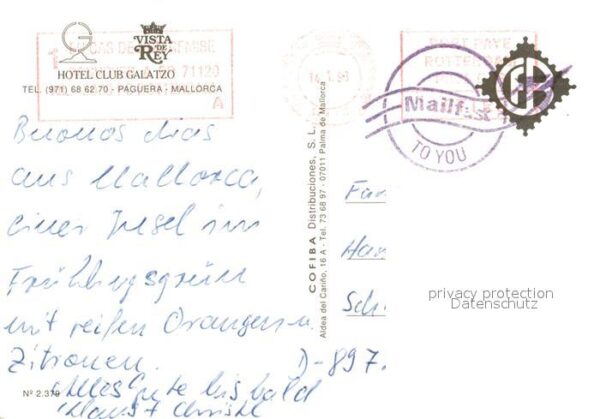 VISTA
DE
REY
HOTEL CLUB GALATZO
TEL. (971) 68 62 70 - PAGUERA - MALLORCA
71120
A
14.1.
POST PAYE
ROTTERDAM
Mailfast
TO YOU
Buenos dias
aus Mallorca,
einer Insel im
Frühlingsgrün
mit reifen Orangen u.
Zitronen.
Alles Gute bis bald
Klaus + Christl
Nº 2.379
COFIBA Distribuciones, S. L.
Aldea del Cariño, 16 A - Tel. 73 68 97 - 07011 Palma de Mallorca
Fam
Han
Sch
D-897
privacy protection
Datenschutz